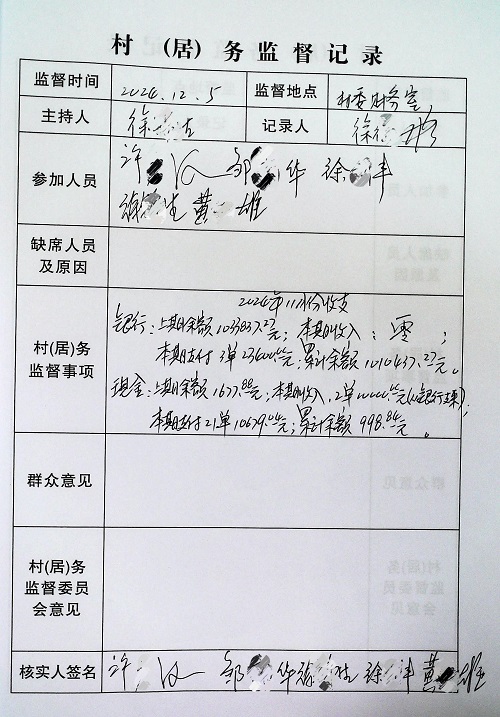 村 (居) 务 监 督 记 录
监督时间 2024.12.5 监督地点 村委财务室
主持人 徐 记录人 徐
参加人员 许 邹 华 徐
黄 雄
缺席人员
及原因
2024年11月份收支
银行:上期余额1033837.27元;本期收入:零;
村(居)务
监督事项
本期支付3单23400元;累计余额1010437.27元。
现金:上期余额1677.88元;本期收入,2单10000元(从银行来);
本期支付21单10679.04元;累计余额998.84元。
群众意见
村(居)务
监督委员
会意见
核实人签名 许 邹 华 徐 黄 雄